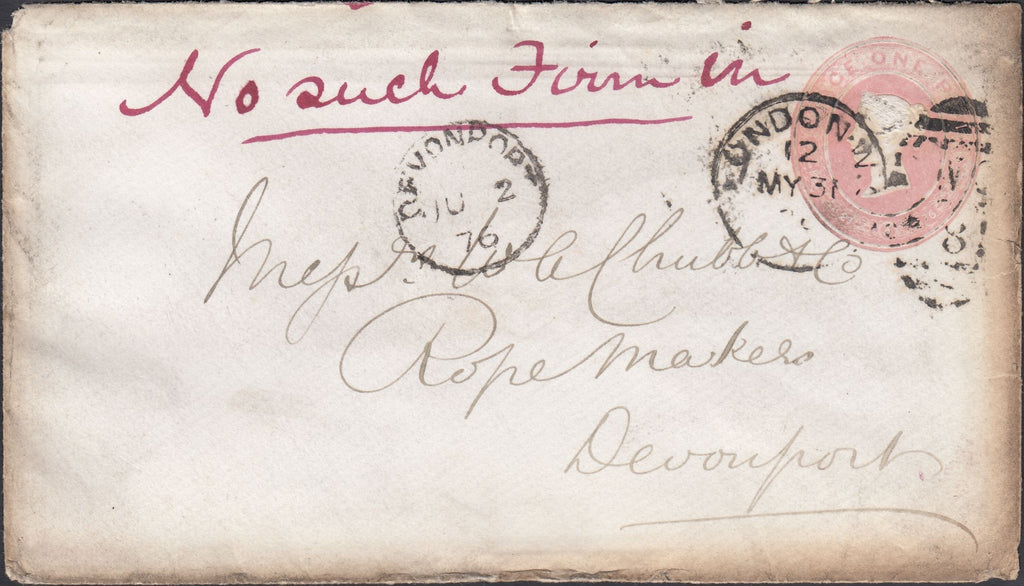 No such Firm in
ONE P
LONDON·W
12
MY 31
W
8
DEVONPORT
JU 2
76
Messrs. W C Chubb & Co
Rope Makers
Devonport